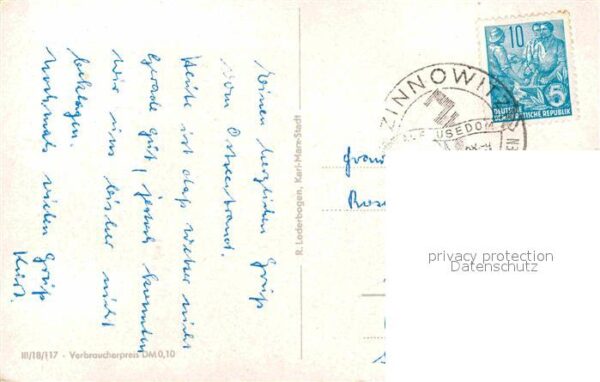 Einen herzlichen Gruß
vom Ostseestrand.
Heute ist das Wetter nicht
gerade gut, jedoch konnten
wir uns bisher nicht
beklagen.
Nochmals vielen Gruß
Kurt.
III/18/117 - Verbraucherpreis DM 0,10
R. Loderbogen, Karl-Marx-Stadt
ZINNOWITZ
USEDOM
10
5
DEUTSCHE
DEMOKRATISCHE REPUBLIK
privacy protection
Datenschutz